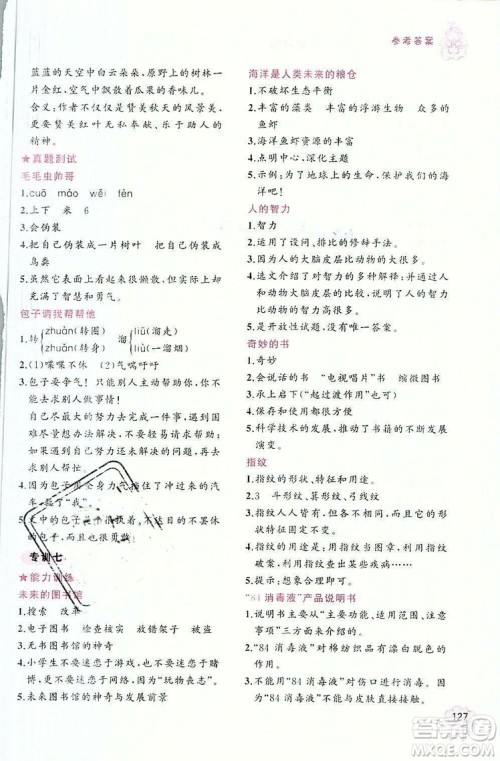 参考答案
蓝蓝的天空中白云朵朵，原野上的树林一
片金黄，空气中飘散着瓜果的香味儿。
含义：作者不仅仅是赞美秋天的风景美，
也是在赞美积极劳动、乐于助人的
精神。
★真题到试
毛毛虫帅哥
1.cuō máo wěi fèn
2.上下 米 6
3.会伪装
4.把自己伪装成一片树叶 把自己伪装成
鸟粪
5.虽然毛毛虫看起来很懒散，但实际上却
充满了智慧和勇气。
包子请我帮帮他
1.转{zhuàn(转圈) zhuǎn(转身) 溜{liū(溜走) liù(一溜烟)
2.(1)喋喋不休 (2)气喘吁吁
3.包子要争气！只去别人主动帮助是不
够的，还要学会自己克服困难。
自己尽最大的努力去完成一件事，遇到
困难自己想办法去解决，解决不了的时
候再去求助别人。
4.因为包子全身力气抵住了冲过来的汽
车，撞了“我”。
5.文中的包子有一种很执着、不达目的不罢休
的精神，而且他很勇敢。
专训七
★能力训练
未来的图书馆
1.搜索 改革
2.电子图书 检查核实 放错架子 被盗
3.无书可读 有书难读
4.小学生不要迷恋于游戏，也不要迷恋于
网络，更不能因为“玩物丧志”。
5.未来图书馆的神奇与发展前景
海洋是人类未来的粮仓
1.不破坏生态平衡
2.丰富的藻类 丰富的浮游生物 众多的
鱼虾
3.海洋鱼虾资源的丰富
4.点明中心，深化主题
5.示例：为了地球上的生灵，请保护好海
洋吧！
人的智力
1.智力
2.运用了设问、排比的修辞手法。
3.因为人的大脑皮层比动物大脑皮层发达。
4.选文介绍了智力的多种解释；人的智力
和动物大脑皮层有关；人的智力比动物
智力高。
5.开放性试题，没有唯一答案。
奇妙的书
1.奇妙
2.会说话的书 “电视唱片”书 缩微图书
3.承上启下（“起过渡作用”也可）
4.科学技术的发展，推动了书籍的不断发展
演变。
指纹
1.指纹的形状、特征和用途。
2.3 斗形纹、箕形纹、弧形纹
3.因为每个人的指纹都不同，指纹还有不
变的特征。
4.指纹的用途：用指纹可以代替印章，还可
利用指纹来查出某些疾病……
5.提示：想象合理即可。
“84消毒液”产品说明书
1.说明书主要从“主要功能、适用范围、注
意事项”三方面来写的。
2.“84消毒液”对棉纺织品有漂白脱色的
作用，对金属有腐蚀作用。
3.不能。因为“84消毒液”不能与皮肤
直接接触。
127